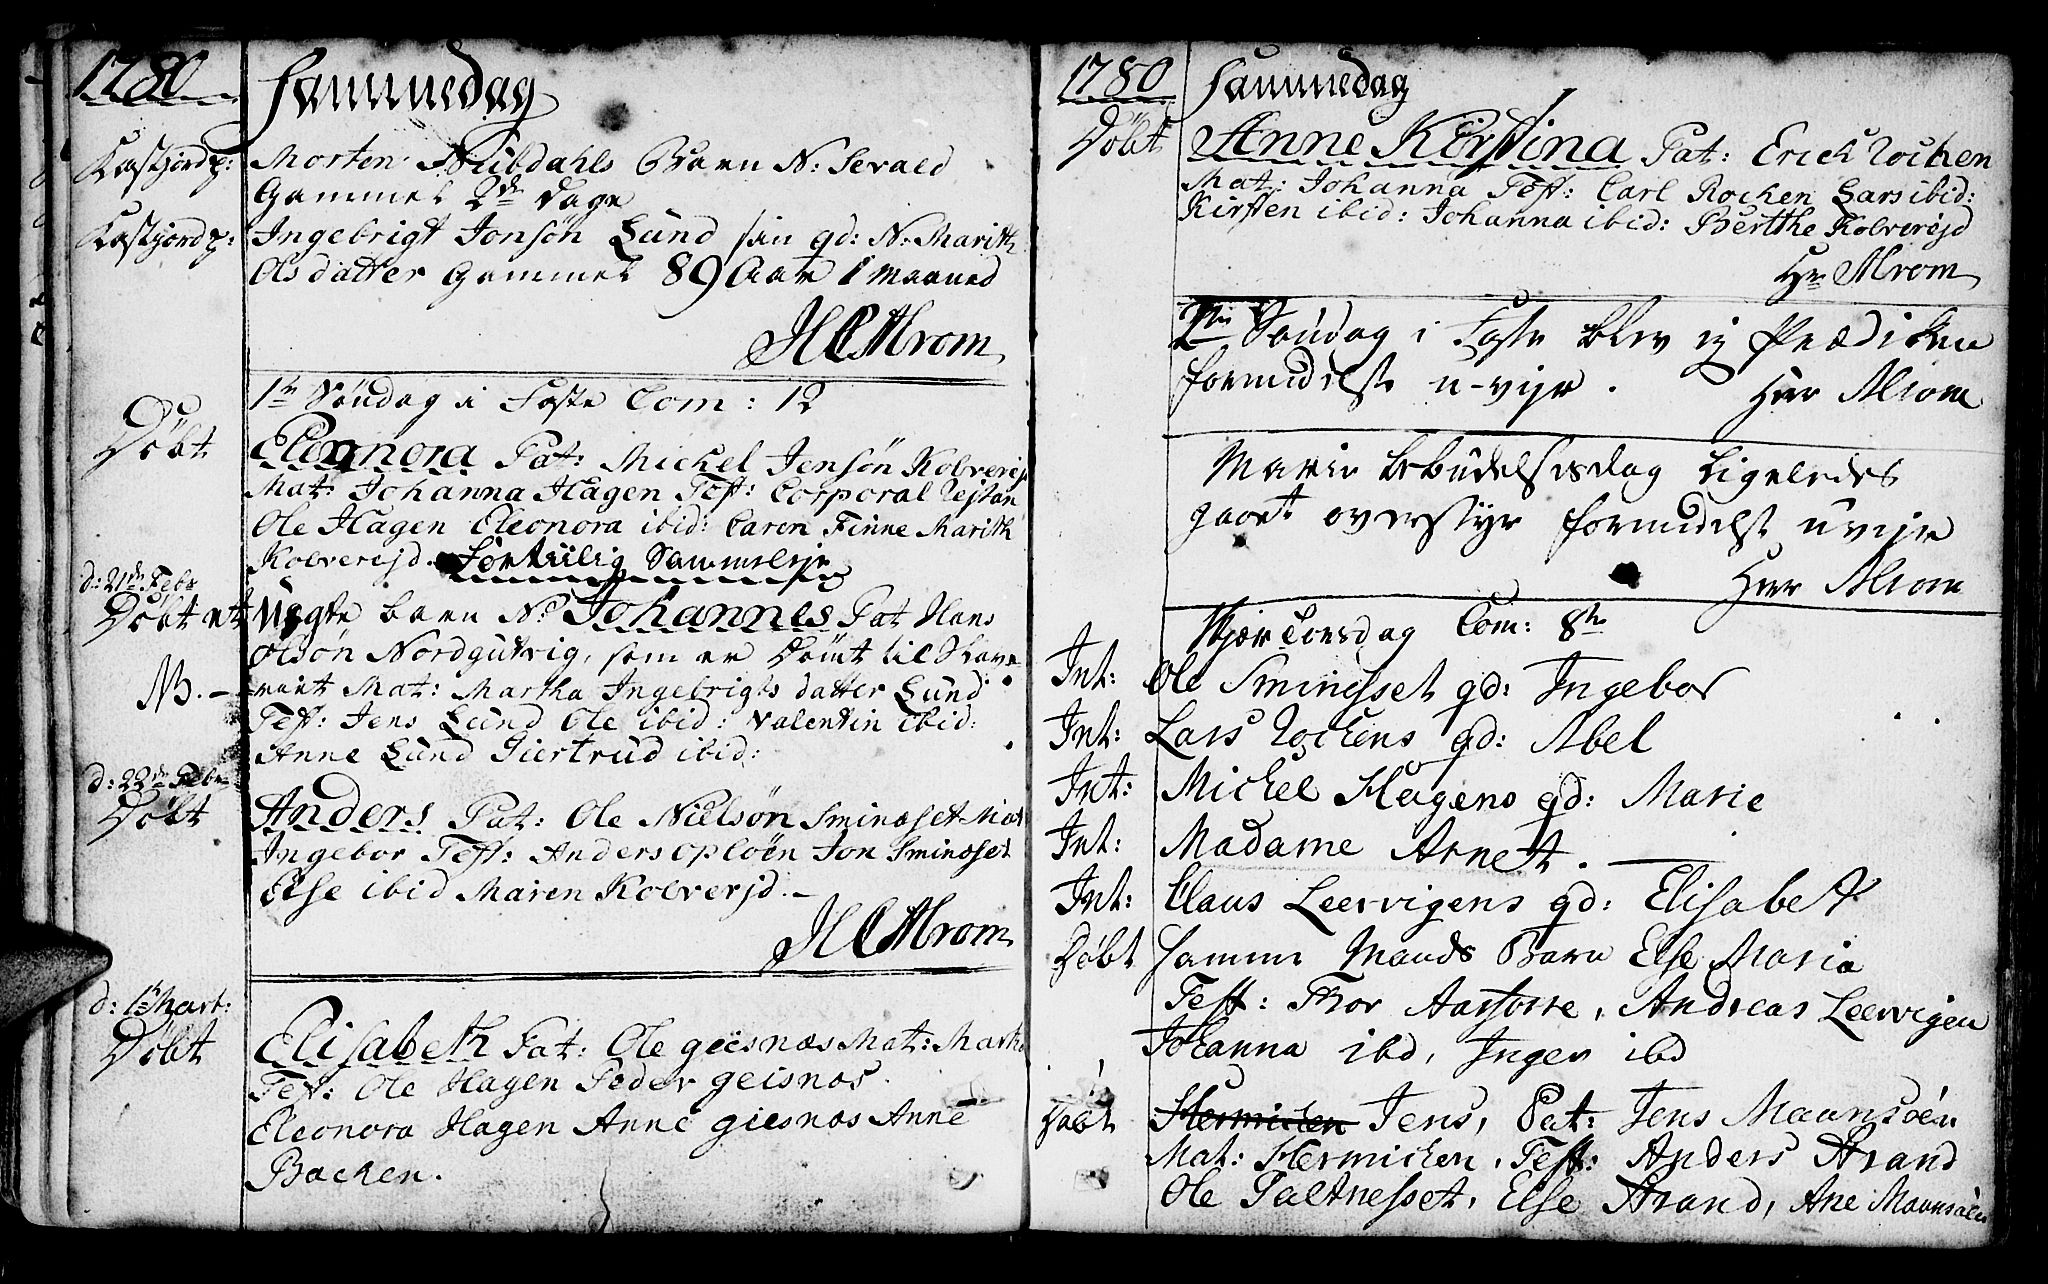 1780 Sammedag
Kastjord p: Morten Nubdahls Barn N: Sevald
Gammel 2de Dage
Kastjord p: Ingebrigt Jonsøn Lund sin qd: N: Marith
Olsdatter Gammel 89 Aar 1 Maaned
HCMrom
1te Søndag i Faste Com: 12
Døbt Eleonora Pat: Mickel Jensøn Kolverejd
Mat: Johanna Hagen Test: Corporal
Ole Hagen Eleonora ibid: Caren Finne Marith
Kolverejd. Fortiilig Sammeleje
d: 21de Febr
Døbt et Uegte barn N: Johannes Pat Hans
Olsøn Nordgutvig, som er Dømt til Slave
NB. riet Mat: Martha Ingebrigts datter Lund
Test: Jens Lund Ole ibid: Valentin ibid:
Anne Lund Giertrud ibid:
d: 22de Febr
Døbt Anders Pat: Ole Nielsøn Sminæset Mat
Ingebor Test: Anders Opløen Jon Sminæset
Else ibid Maren Kolverejd.
HCMrom
d: 1te Mart:
Døbt Elisabeth Pat: Ole giesnæs Mat: Martha
Test: Ole Hagen Peder geisnæs
Eleonora Hagen Anne giesnæs Anne
Backen.
1780 Sammedag
Døbt Anne Kirstina Pat: Erick Rocken
Mat: Johanna Test: Carl Rocken Lars ibid:
Kirsten ibid: Johanna ibid: Berthe Kolverejd
Hr Mrom
2den Søndag i Faste blev ej Prædiken
formedelst u-vejr. Herr Mrom
Mariæ bebudelsesdag ligeledes
gaaet overstyr formedelst uvejr
Herr Mrom
Skjær Torsdag Com: 8te
Int: Ole Sminesset qd: Ingebor
Int: Lars Rockens qd: Abel
Int: Mickel Hagens qd: Marie
Int: Madame Arnet.
Int: Claus Leervigens qd: Elisabet
Døbt Samme Mands Barn Else Maria
Test: Thor Aarsorre, Andreas Leervigen
Johanna ibd, Inger ibd
Døbt Hermichen Jens, Pat: Jens Maansøen
Mat: Hermichen, Test: Anders Strand
Ole Saltnesset, Else Strand, Ane Maansøen